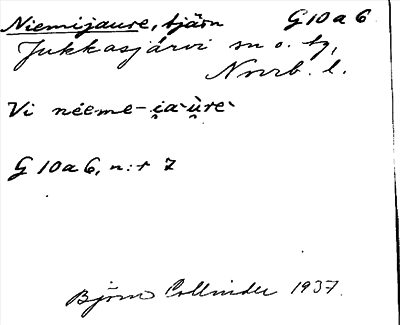 Niemijaure, tjärn G10a6
Jukkasjärvi sn o. tg,
Norrb. l.
Vi néeme-i̯a·ùre·
G10a6, n:r 7
Björn Collinder 1937.